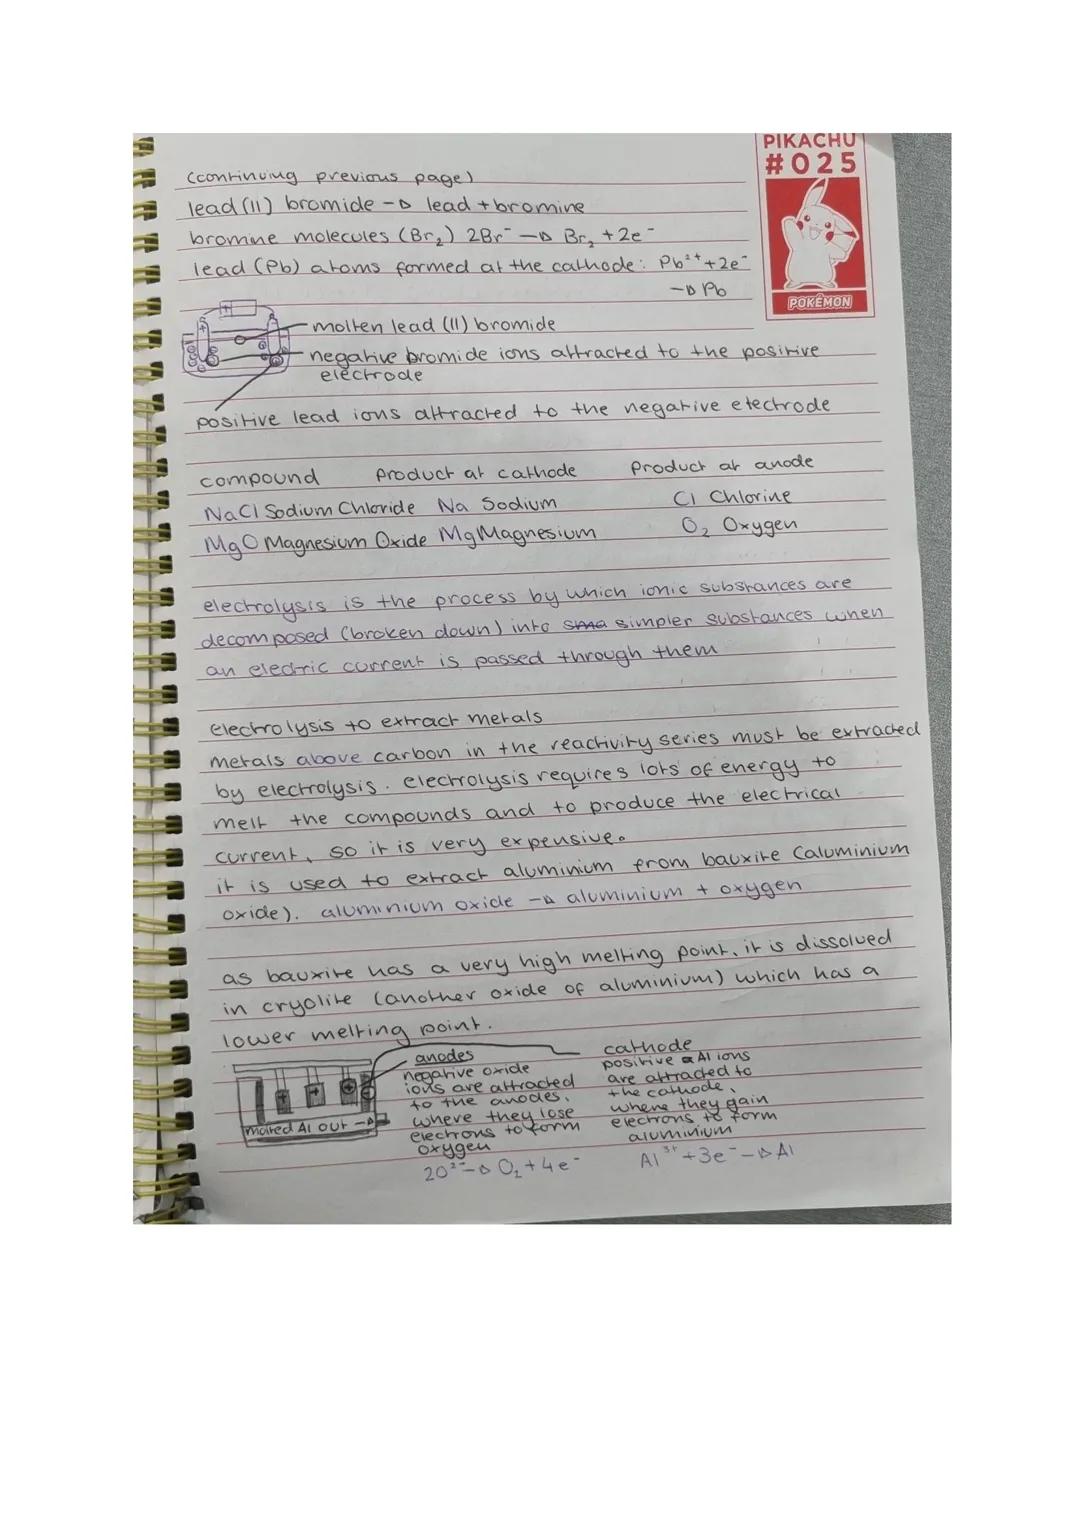 PIKACHU
#025
POKÉMON
(continuing previous page)
lead (II) bromide -> lead + bromine
bromine molecules (Br₂) 2Br⁻ -> Br₂ + 2e⁻
lead (Pb) atoms formed at the cathode: Pb²⁺ + 2e⁻
-> Pb
molten lead (II) bromide
negative bromide ions attracted to the positive
electrode
positive lead ions attracted to the negative electrode
compound Product at cathode Product at anode
NaCl Sodium Chloride Na Sodium Cl Chlorine
MgO Magnesium Oxide Mg Magnesium O₂ Oxygen
electrolysis is the process by which ionic substances are
decomposed (broken down) into sma simpler substances when
an electric current is passed through them
electrolysis to extract metals
metals above carbon in the reactivity series must be extracted
by electrolysis. electrolysis requires lots of energy to
melt the compounds and to produce the electrical
current, so it is very expensive.
it is used to extract aluminium from bauxite (aluminium
oxide). aluminium oxide -> aluminium + oxygen
as bauxite has a very high melting point, it is dissolved
in cryolite (another oxide of aluminium) which has a
lower melting point.
molted Al out ->
anodes
negative oxide
ions are attracted
to the anodes,
where they lose
electrons to form
oxygen
2O²⁻ -> O₂ + 4e⁻
cathode
positive Al ions
are attracted to
the cathode,
where they gain
electrons to form
aluminium
Al³⁺ + 3e⁻ -> Al